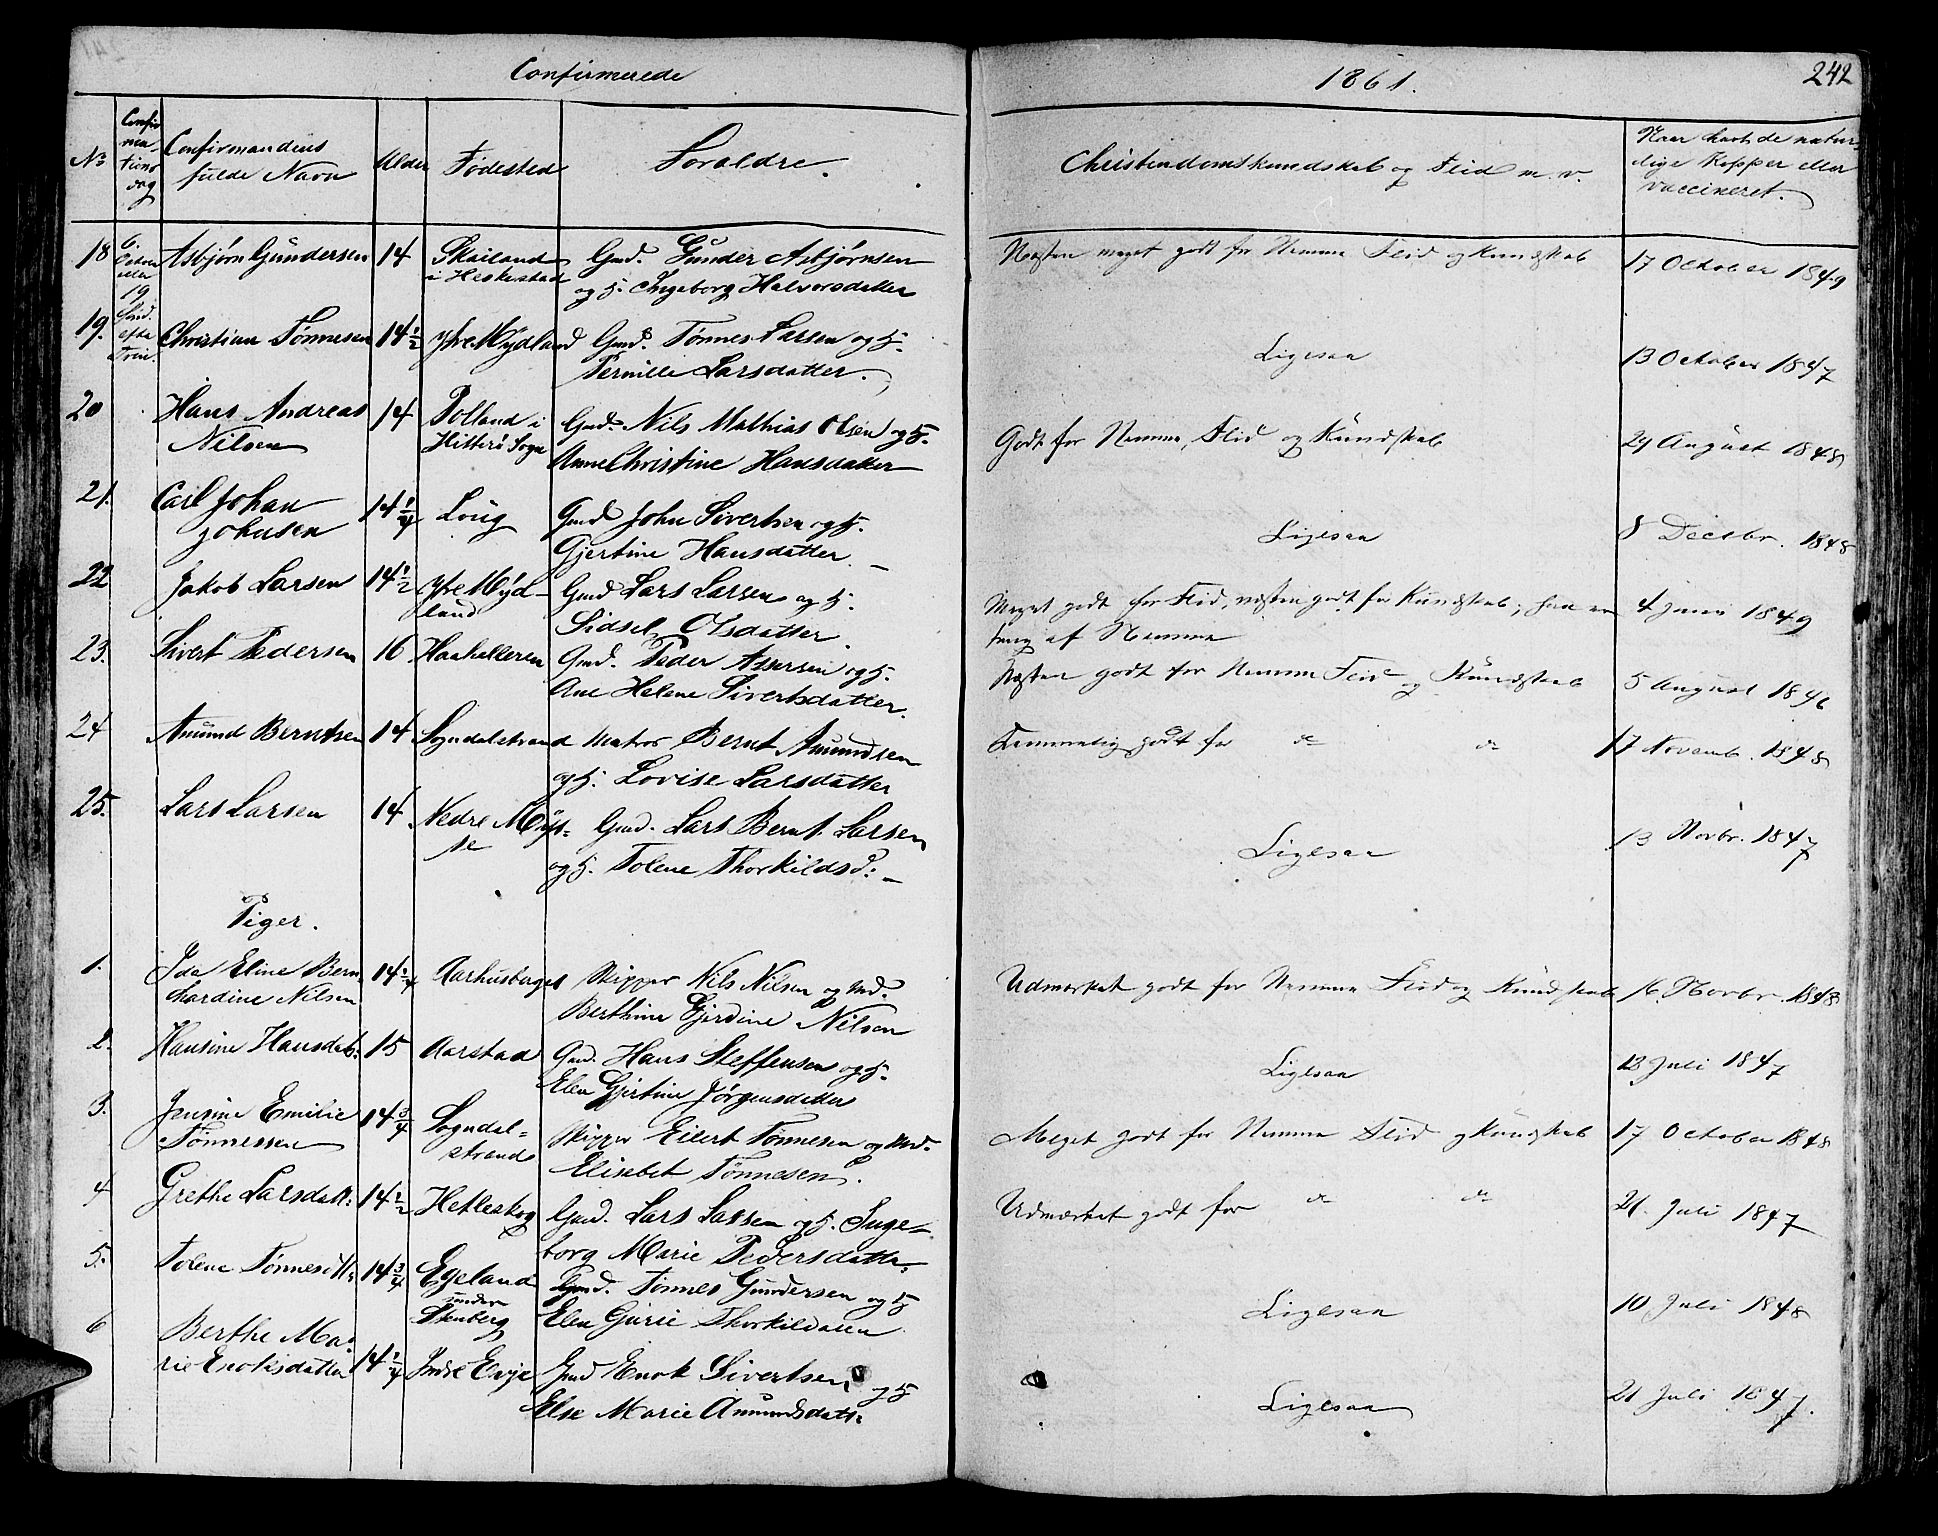 Confirmerede
1861.
242
No
Confir
ma-
tions
dag
Confirmandens
fulde Navn
Alder
Fødested
Foraldre.
Christendomskundskab og Flid m. v.
Naar havt de natur-
lige Kopper eller
vaccineret.
18 6. Asbjørn Gundersen 14 Skailand Gmd. Gunder Asbjørnsen Næsten meget godt for Nemme Flid og Kundskab 17 October 1849
i Heskestad og H. Ingeborg Halvorsdatter
19
19. Christian Tønnesen 14 1/2 Yvre Mydland Gmd. Tønnes Larsen og H. Ligesaa 13 October 1847
Pernille Larsdatter.
20 Hans Andreas 14 Polland i Gmd. Nils Mathias Olsen og H. Godt for Nemme, Flid og Kundskab 29 August 1848
Nilsen Hitterø Sogn Anne Christine Hansdatter
21. Carl Johan 14 1/4 Loug Gmd John Sivertsen og H. Ligesaa 8 Decbr. 1848
Johnsen Gjertine Hansdatter.
22 Jakob Larsen 14 1/2 Yvre Myd- Gmd Lars Larsen og H. Meget godt for Flid, næsten godt for Kundskab, 4 Juni 1849
land Sidsel Olsdatter. af Nemme
23. Sivert Pedersen 16 Haahelleren Gmd. Peder Assersen og H. Næsten godt for Nemme Flid og Kundskab 5 August 1846
Ane Helene Sivertsdatter.
24 Amund Berntsen 14 Sogndalstrand Matros Bernt Amundsen Temmelig godt for do do 17 Novemb. 1848
og H. Lovise Larsdatter
25. Lars Larsen 14 Nedre Mys- Gmd. Lars Bernt. Larsen Ligesaa 13 Novbr. 1847
se og H. Tolene Thorkildsd:
Piger.
1. Ida Eline Bern- 14 1/4 Aarhusberget Skipper Nils Nilsen og Md. Udmærket godt for Nemme Flid og Kundskab 16. Novbr. 1848
hardine Nilsen Berthine Gjerdine Nilsen
2. Hansine Hansdat: 15 Aarstad Gmd. Hans Steffensen og H. Ligesaa 13 Juli 1847
Elen Gjertine Jørgensdatter
3. Jensine Emilie 14 3/4 Sogndal- Skipper Eilert Tønnesen og Md. Meget godt for Nemme Flid og Kundskab 17 October 1848
Tønnessen strand Elisebet Tønnesen.
4 Grethe Larsdatt: 14 1/2 Hetleskog Gmd. Lars Larsen og H. Inge- Udmærket godt for do do 21. Juli 1847
borg Marie Pedersdatter.
5. Tolene Tønnesdtt: 14 3/4 Egeland Gmd. Tønnes Gundersen og H Ligesaa 10 Juli 1848
under Elen Gurie Thorkildsen
Stenberg
6 Berthe Ma- 14 1/4 Indre Evje Gmd Enok Sivertsen og H Ligesaa 21 Juli 1847.
rie Enoksdatter Else Marie Amundsdatt: